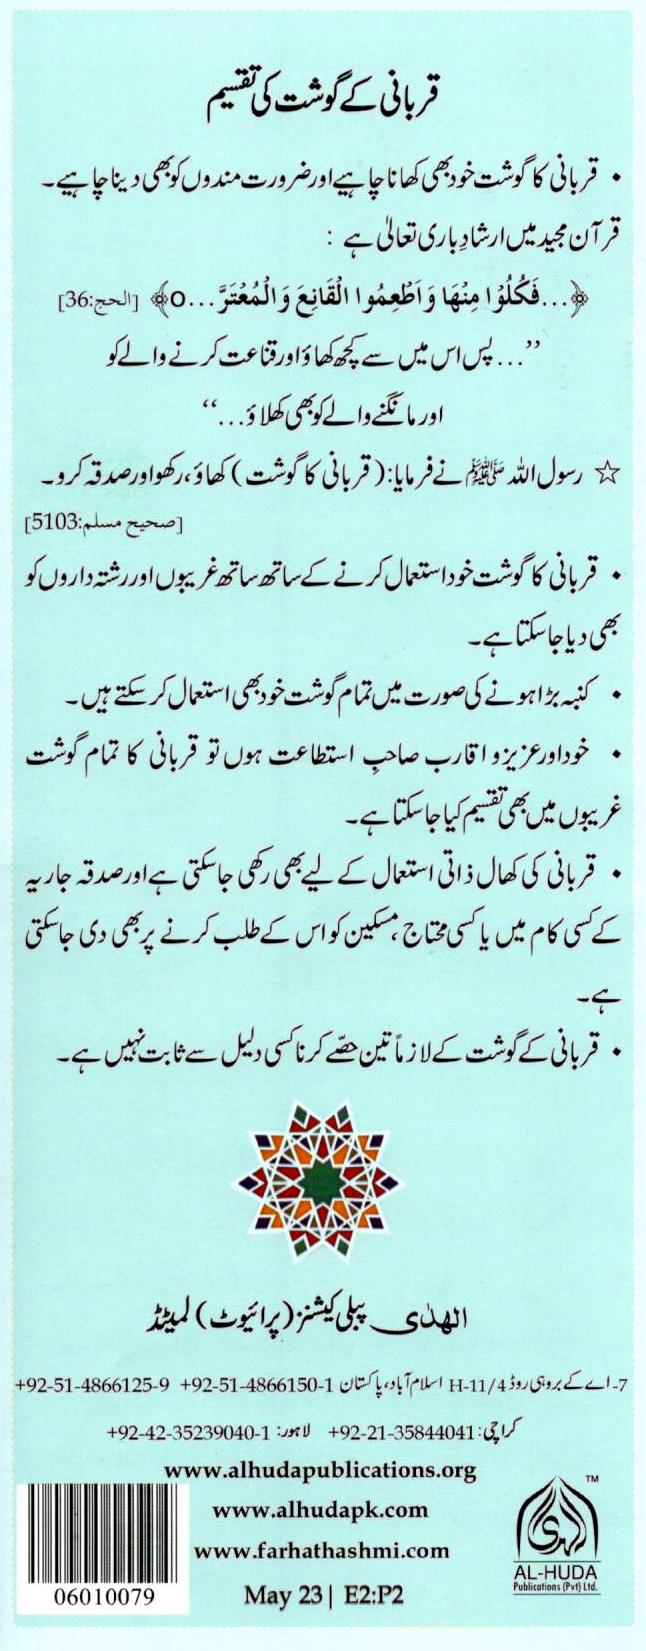 قربانی کے گوشت کی تقسیم
• قربانی کا گوشت خود بھی کھانا چاہیے اور ضرورت مندوں کو بھی دینا چاہیے۔
قرآن مجید میں ارشادِ باری تعالیٰ ہے :
﴿...فَكُلُوْا مِنْهَا وَاَطْعِمُوا الْقَانِعَ وَالْمُعْتَرَّ...o﴾ [الحج:36]
’’...پس اس میں سے کچھ کھاؤ اور قناعت کرنے والے کو
اور مانگنے والے کو بھی کھلاؤ...‘‘
☆ رسول اللہ ﷺ نے فرمایا: (قربانی کا گوشت) کھاؤ، رکھو اور صدقہ کرو۔
[صحیح مسلم:5103]
• قربانی کا گوشت خود استعمال کرنے کے ساتھ ساتھ غریبوں اور رشتہ داروں کو
بھی دیا جا سکتا ہے۔
• کنبہ بڑا ہونے کی صورت میں تمام گوشت خود بھی استعمال کر سکتے ہیں۔
• خود اور عزیز و اقارب صاحبِ استطاعت ہوں تو قربانی کا تمام گوشت
غریبوں میں بھی تقسیم کیا جا سکتا ہے۔
• قربانی کی کھال ذاتی استعمال کے لیے بھی رکھی جا سکتی ہے اور صدقہ جاریہ
کے کسی کام میں یا کسی محتاج، مسکین کو اس کے طلب کرنے پر بھی دی جا سکتی
ہے۔
• قربانی کے گوشت کے لازماً تین حصّے کرنا کسی دلیل سے ثابت نہیں ہے۔
الھدٰی پبلی کیشنز (پرائیوٹ) لمیٹڈ
7-اے کے بروہی روڈ H-11/4 اسلام آباد، پاکستان +92-51-4866150-1 +92-51-4866125-9
کراچی: +92-21-35844041 لاہور: +92-42-35239040-1
www.alhudapublications.org
www.alhudapk.com
www.farhathashmi.com
May 23| E2:P2
06010079
الهدى
TM
AL-HUDA
Publications (Pvt) Ltd.